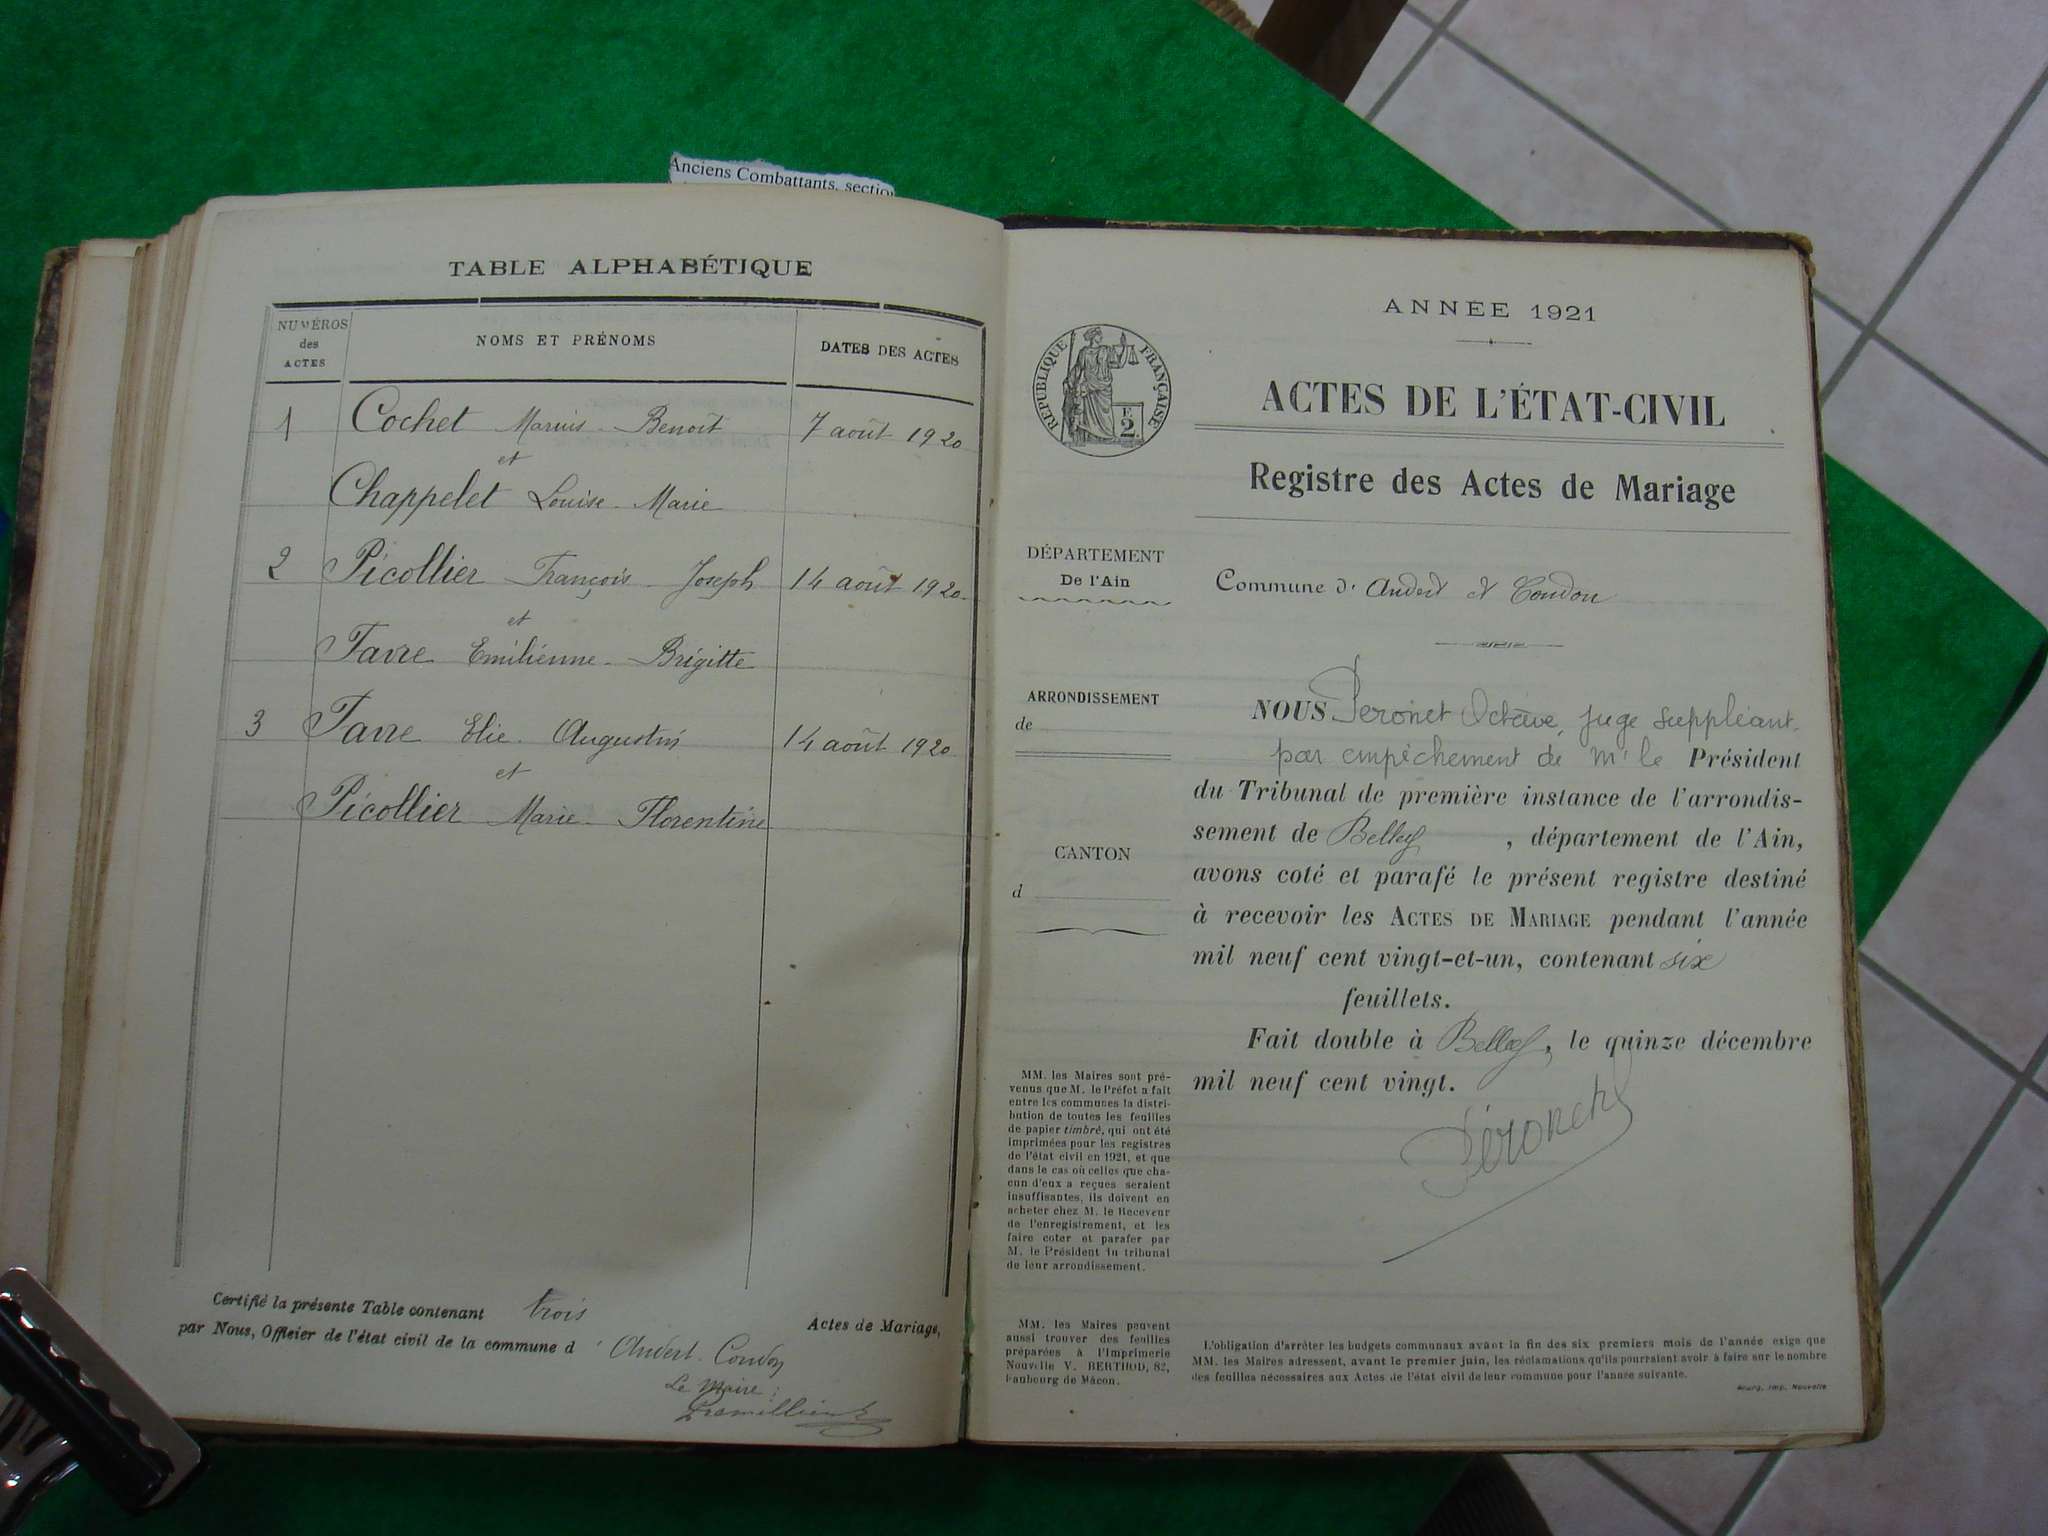 Anciens Combattants, section
TABLE ALPHABÉTIQUE
NUMÉROS
des
ACTES
NOMS ET PRÉNOMS
DATES DES ACTES
1 Cochet Marius Benoît 7 août 1920
et
Chappelet Louise Marie
2 Picollier François Joseph 14 août 1920
et
Favre Emilienne Brigitte
3 Favre Elie Augustin 14 août 1920
et
Picollier Marie Florentine
Certifié la présente Table contenant trois Actes de Mariage,
par Nous, Officier de l'état civil de la commune d'Andert-Condon
Le Maire :
ANNÉE 1921
RÉPUBLIQUE FRANÇAISE
E
2
ACTES DE L'ÉTAT-CIVIL
Registre des Actes de Mariage
DÉPARTEMENT
De l'Ain
Commune d'Andert et Condon
ARRONDISSEMENT
de
CANTON
d
NOUS Peronet Octave, juge suppléant
par empêchement de Mr le Président
du Tribunal de première instance de l'arrondis-
sement de Belley, département de l'Ain,
avons coté et parafé le présent registre destiné
à recevoir les ACTES DE MARIAGE pendant l'année
mil neuf cent vingt-et-un, contenant six
feuillets.
Fait double à Belley, le quinze décembre
mil neuf cent vingt.
Péronet
MM. les Maires sont pré-
venus que M. le Préfet a fait
entre les communes la distri-
bution de toutes les feuilles
de papier timbré, qui ont été
imprimées pour les registres
de l'état civil en 1921, et que
dans le cas où celles que cha-
cun d'eux a reçues seraient
insuffisantes, ils doivent en
acheter chez M. le Receveur
de l'enregistrement, et les
faire coter et parafer par
M. le Président du tribunal
de leur arrondissement.
MM. les Maires peuvent
aussi trouver des feuilles
préparées à l'Imprimerie
Nouvelle V. BERTHOD, 82,
Faubourg de Mâcon.
L'obligation d'arrêter les budgets communaux avant la fin des six premiers mois de l'année exige que
MM. les Maires adressent, avant le premier juin, les réclamations qu'ils pourraient avoir à faire sur le nombre
des feuilles nécessaires aux Actes de l'état civil de leur commune pour l'année suivante.
Bourg, Imp. Nouvelle